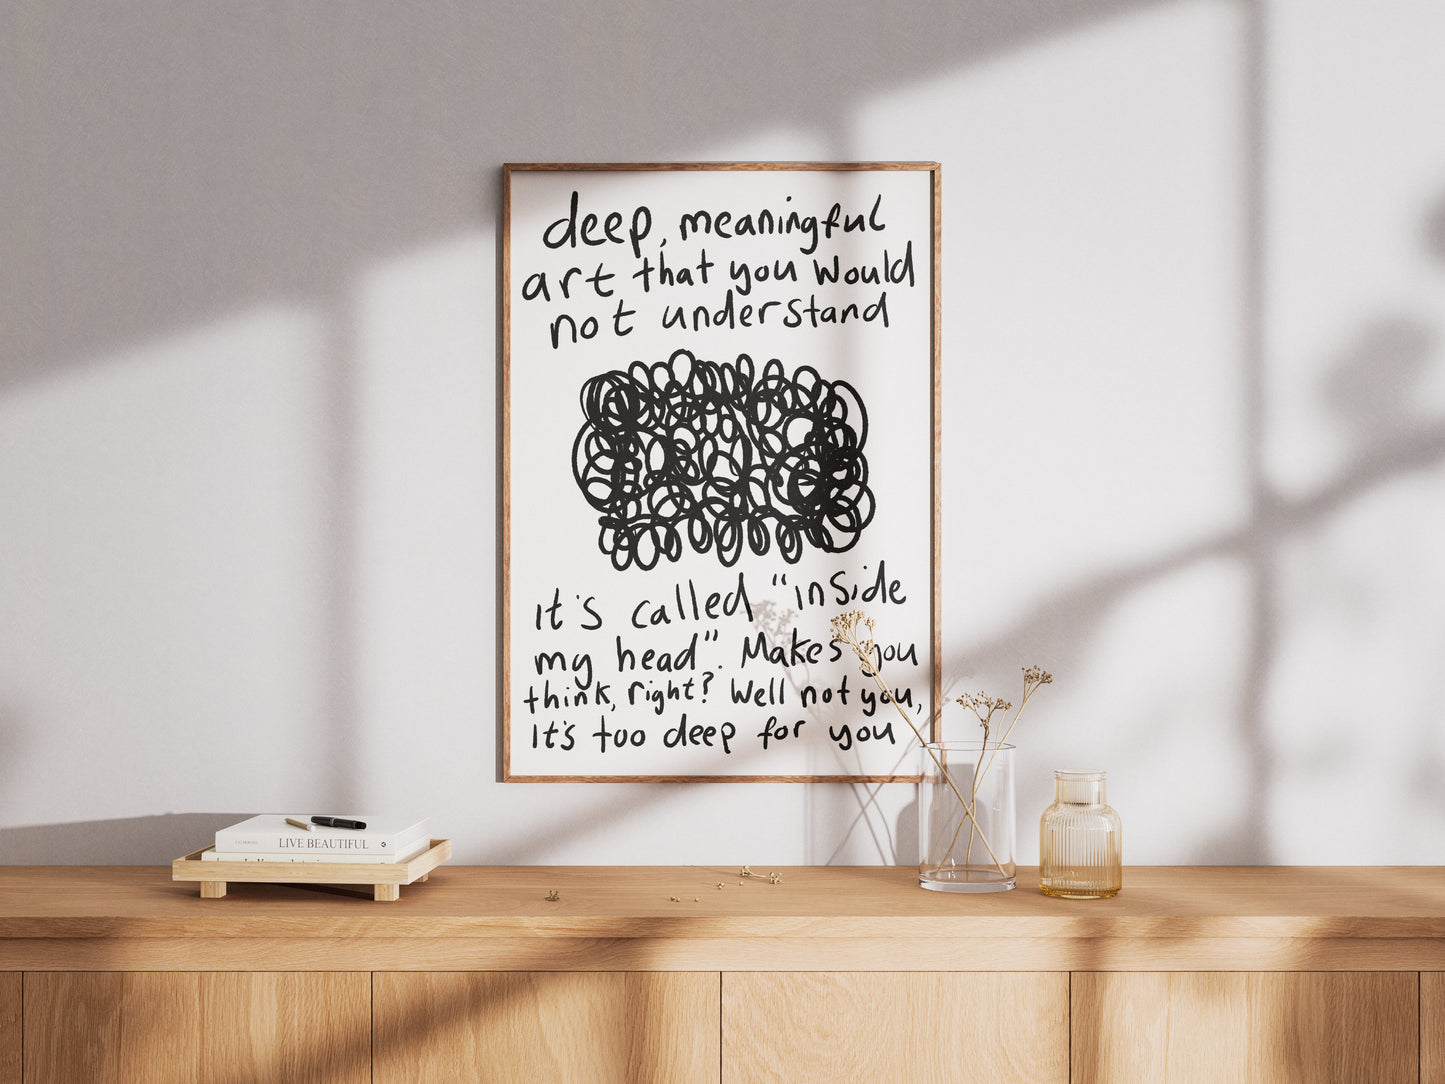 deep, meaningful
art that you would
not understand
it's called "inside
my head". Makes you
think, right? Well not you,
It's too deep for you
LIVE BEAUTIFUL